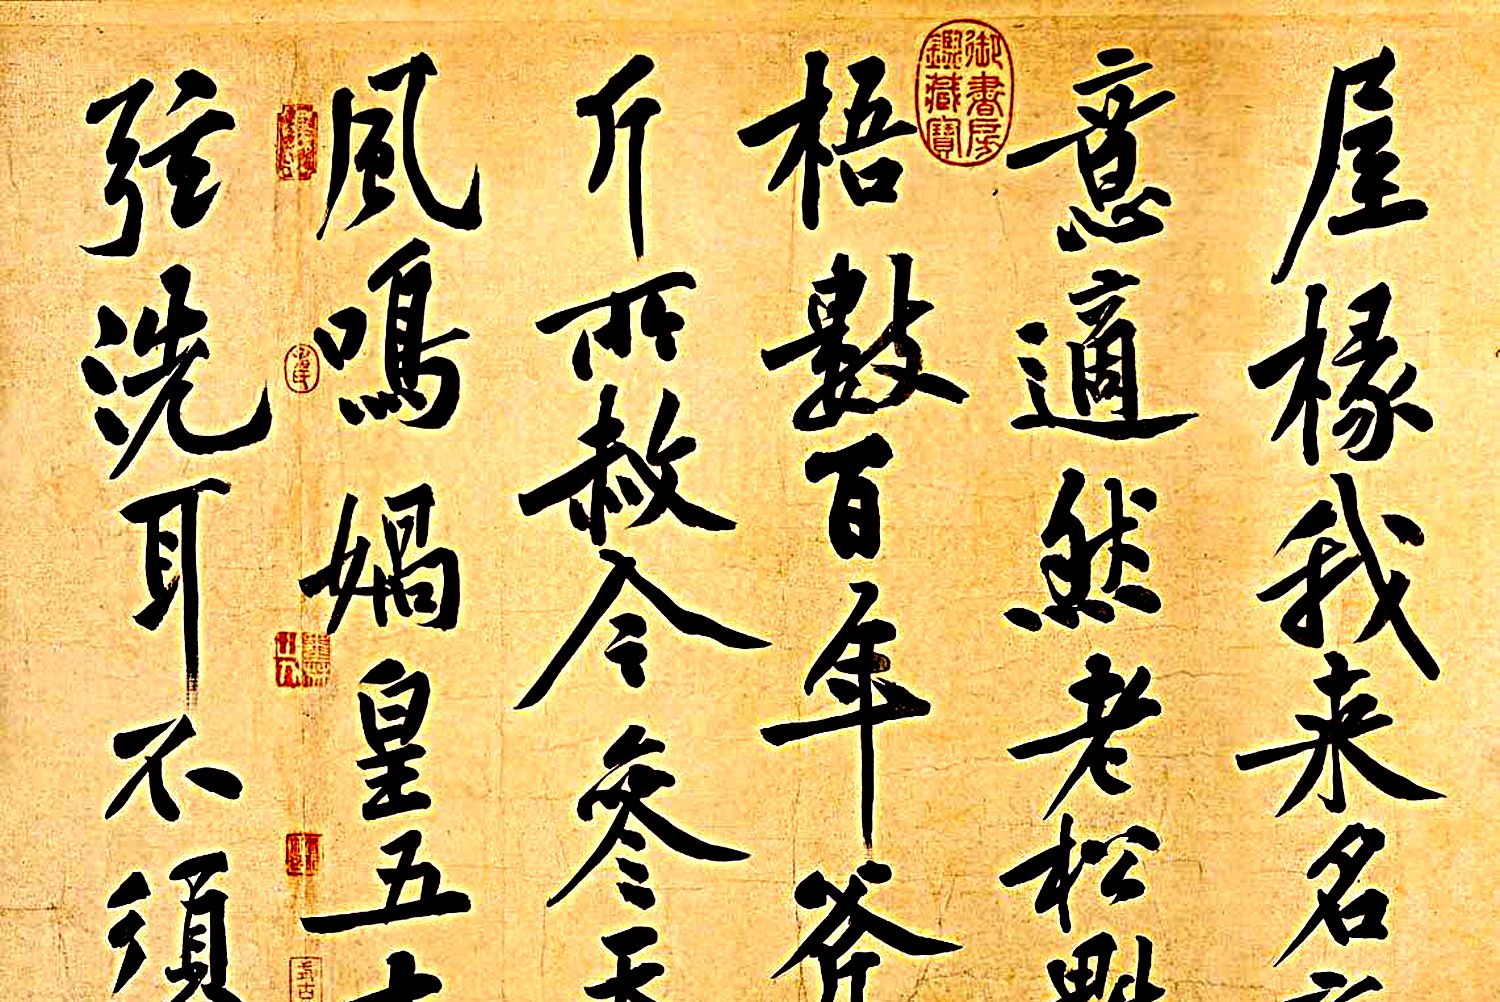 屋椽我来名
意適然老松魁
梧數百年斧
斤所赦今參天
風鳴媧皇五十
弦洗耳不須
御書房鑑藏寶